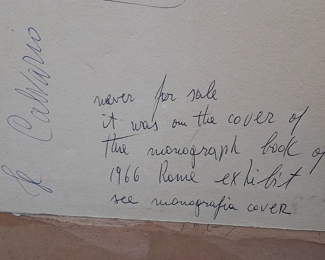 Calvario
never for sale
it was on the cover of
the monograph book of
1966 Rome exhibit
see monografia cover